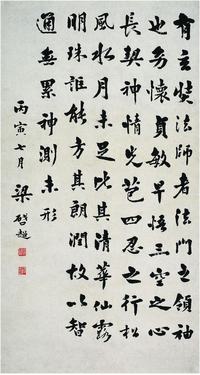 有玄奘法師者法門之領袖
也幼懷貞敏早悟三空之心
長契神情先苞四忍之行松
風水月未足比其清華仙露
明珠詎能方其朗潤故以智
通無累神測未形
丙寅七月 梁啓超